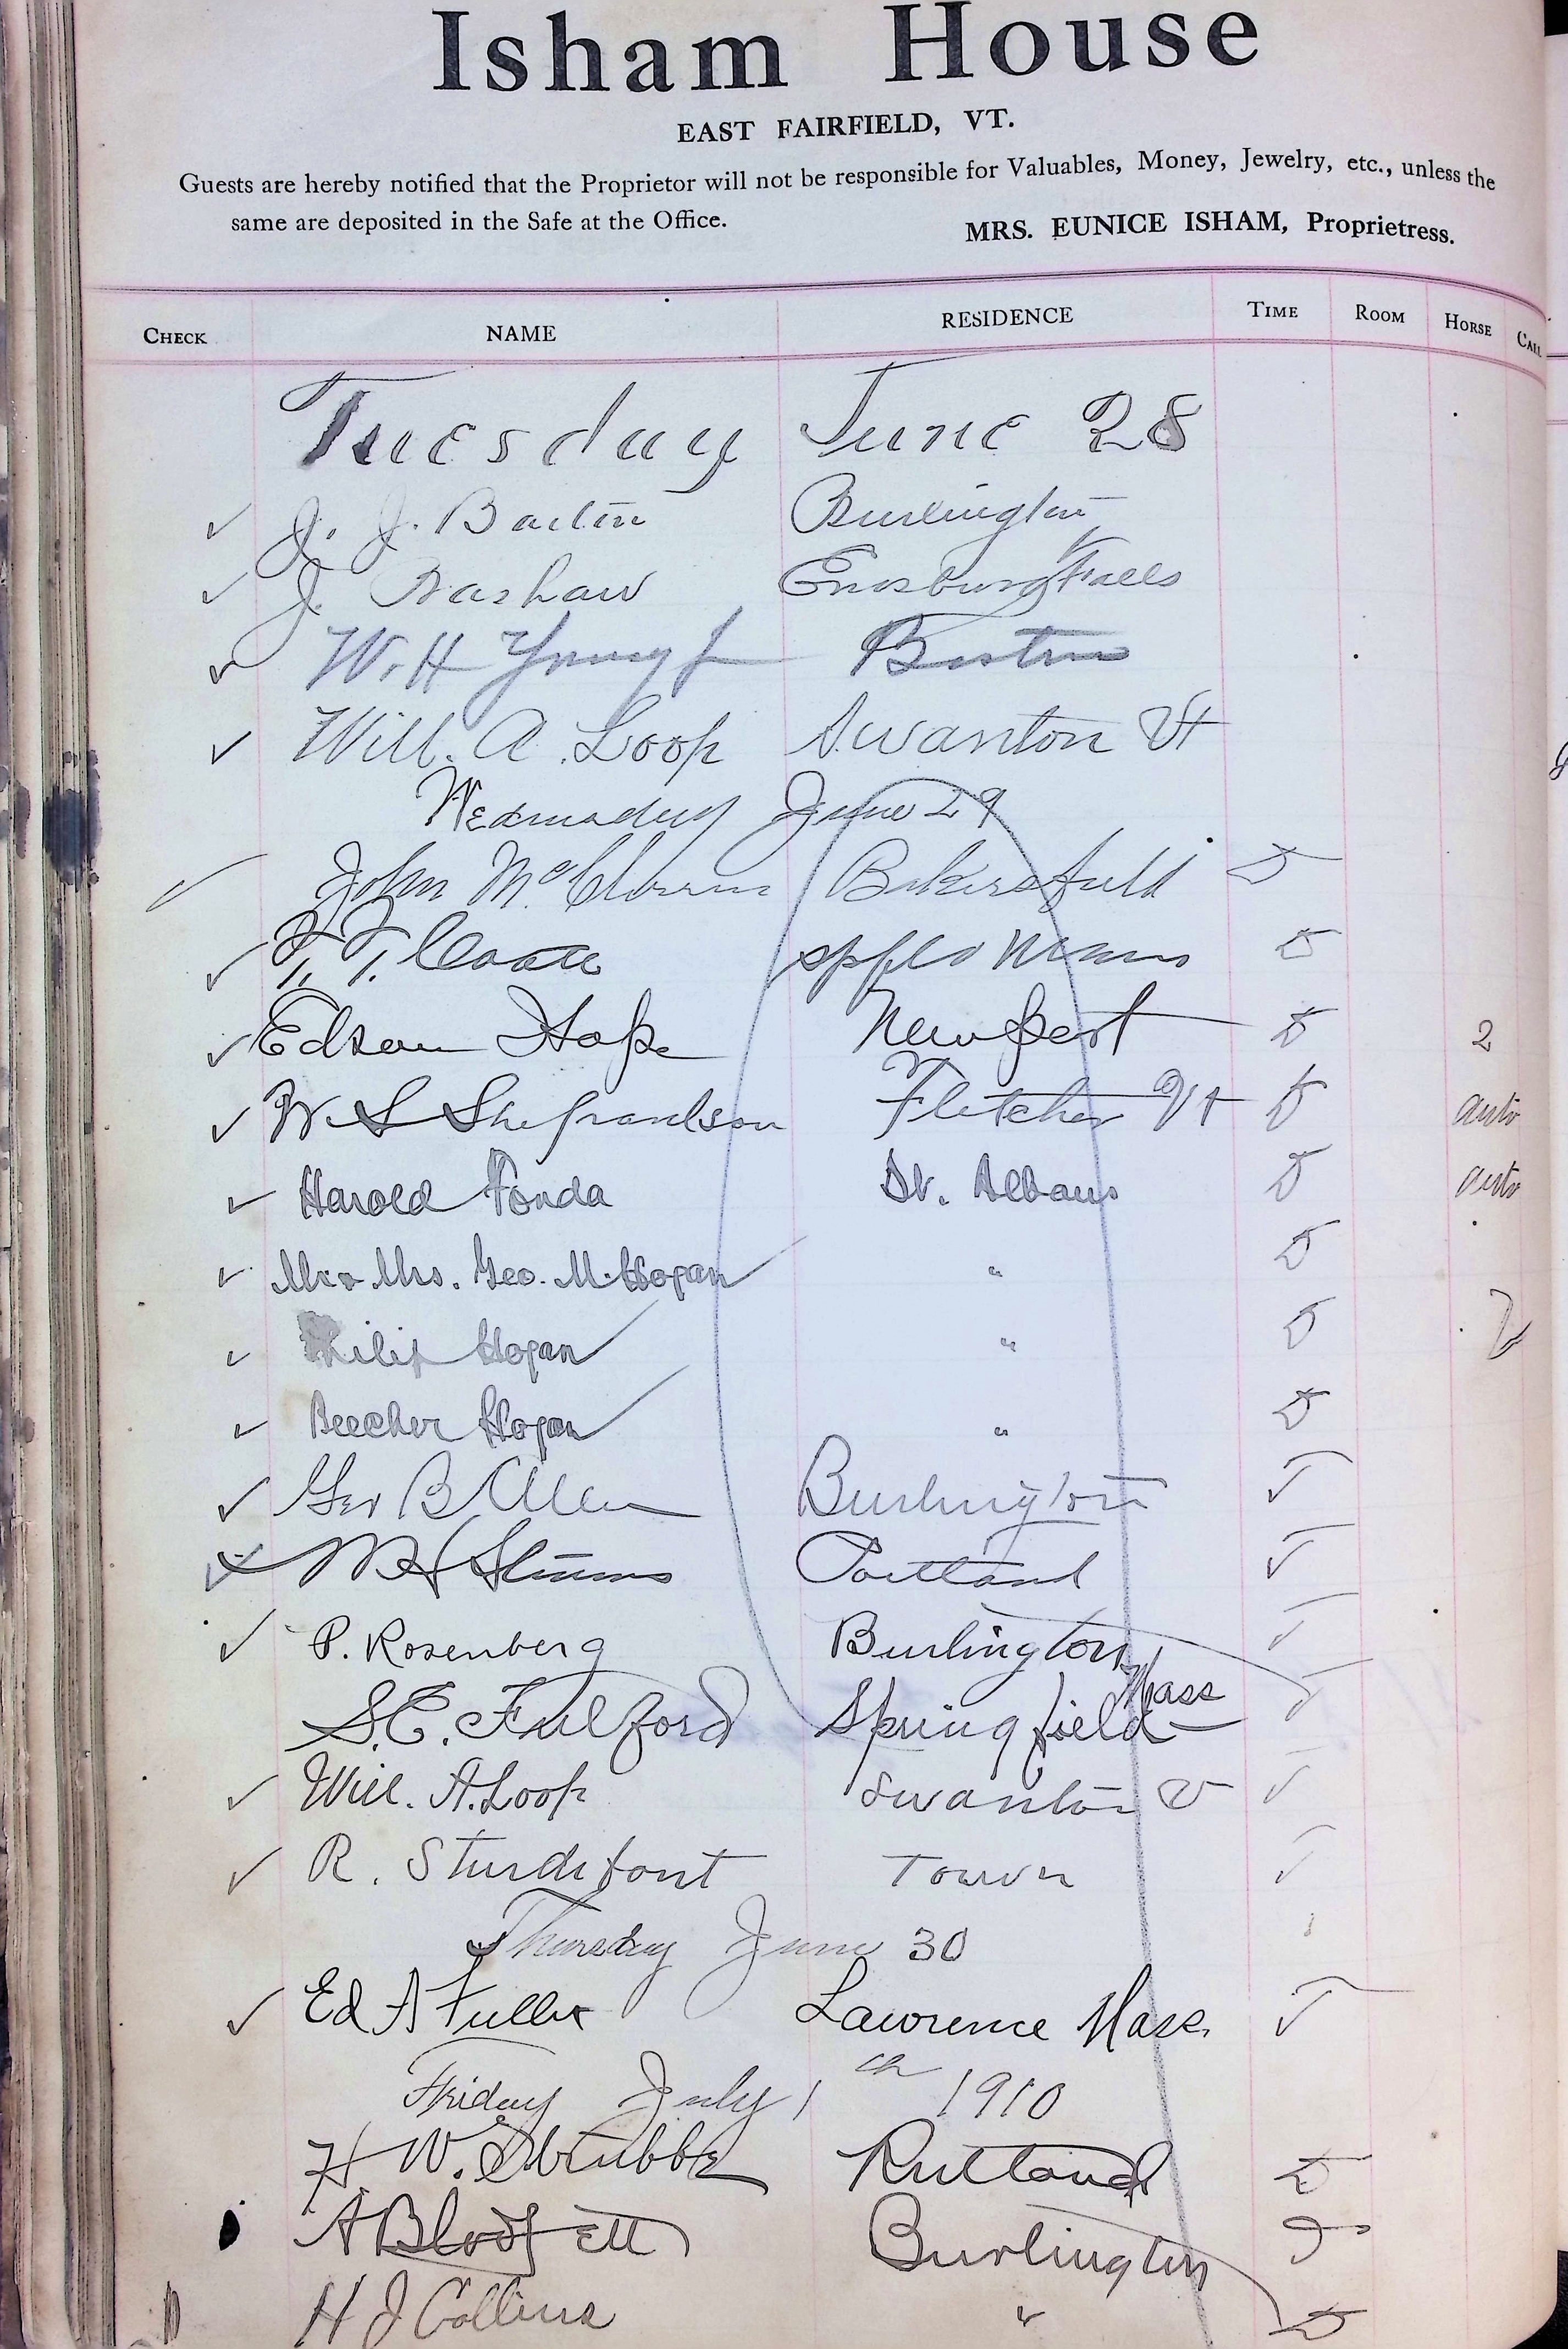 Isham House
EAST FAIRFIELD, VT.
Guests are hereby notified that the Proprietor will not be responsible for Valuables, Money, Jewelry, etc., unless the
same are deposited in the Safe at the Office. MRS. EUNICE ISHAM, Proprietress.
CHECK NAME RESIDENCE TIME ROOM HORSE CALL
Tuesday June 28
J. J. Burlington
J. Enosburg Falls
W. H Boston
Will. A. Loop Swanton Vt
Wednesday June 29
John Bakersfield D
Spfld Mass D
Edson Newport D 2
W S Fletcher Vt D auto
Harold Fonda St. Albans D auto
Mr & Mrs. Geo. M. Hogan " D
Philip Hogan " D
Beecher Hogan " D
Geo B Allen Burlington
Portland
P. Rosenberg Burlington
S. C. Fulford Springfield Mass
Will. A. Loop Swanton V
R. Sturdifant Town
Thursday June 30
Ed A Fuller Lawrence Mass.
Friday July 1 1910
H W. Rutland D
A Blodgett Burlington
H J Collins " D